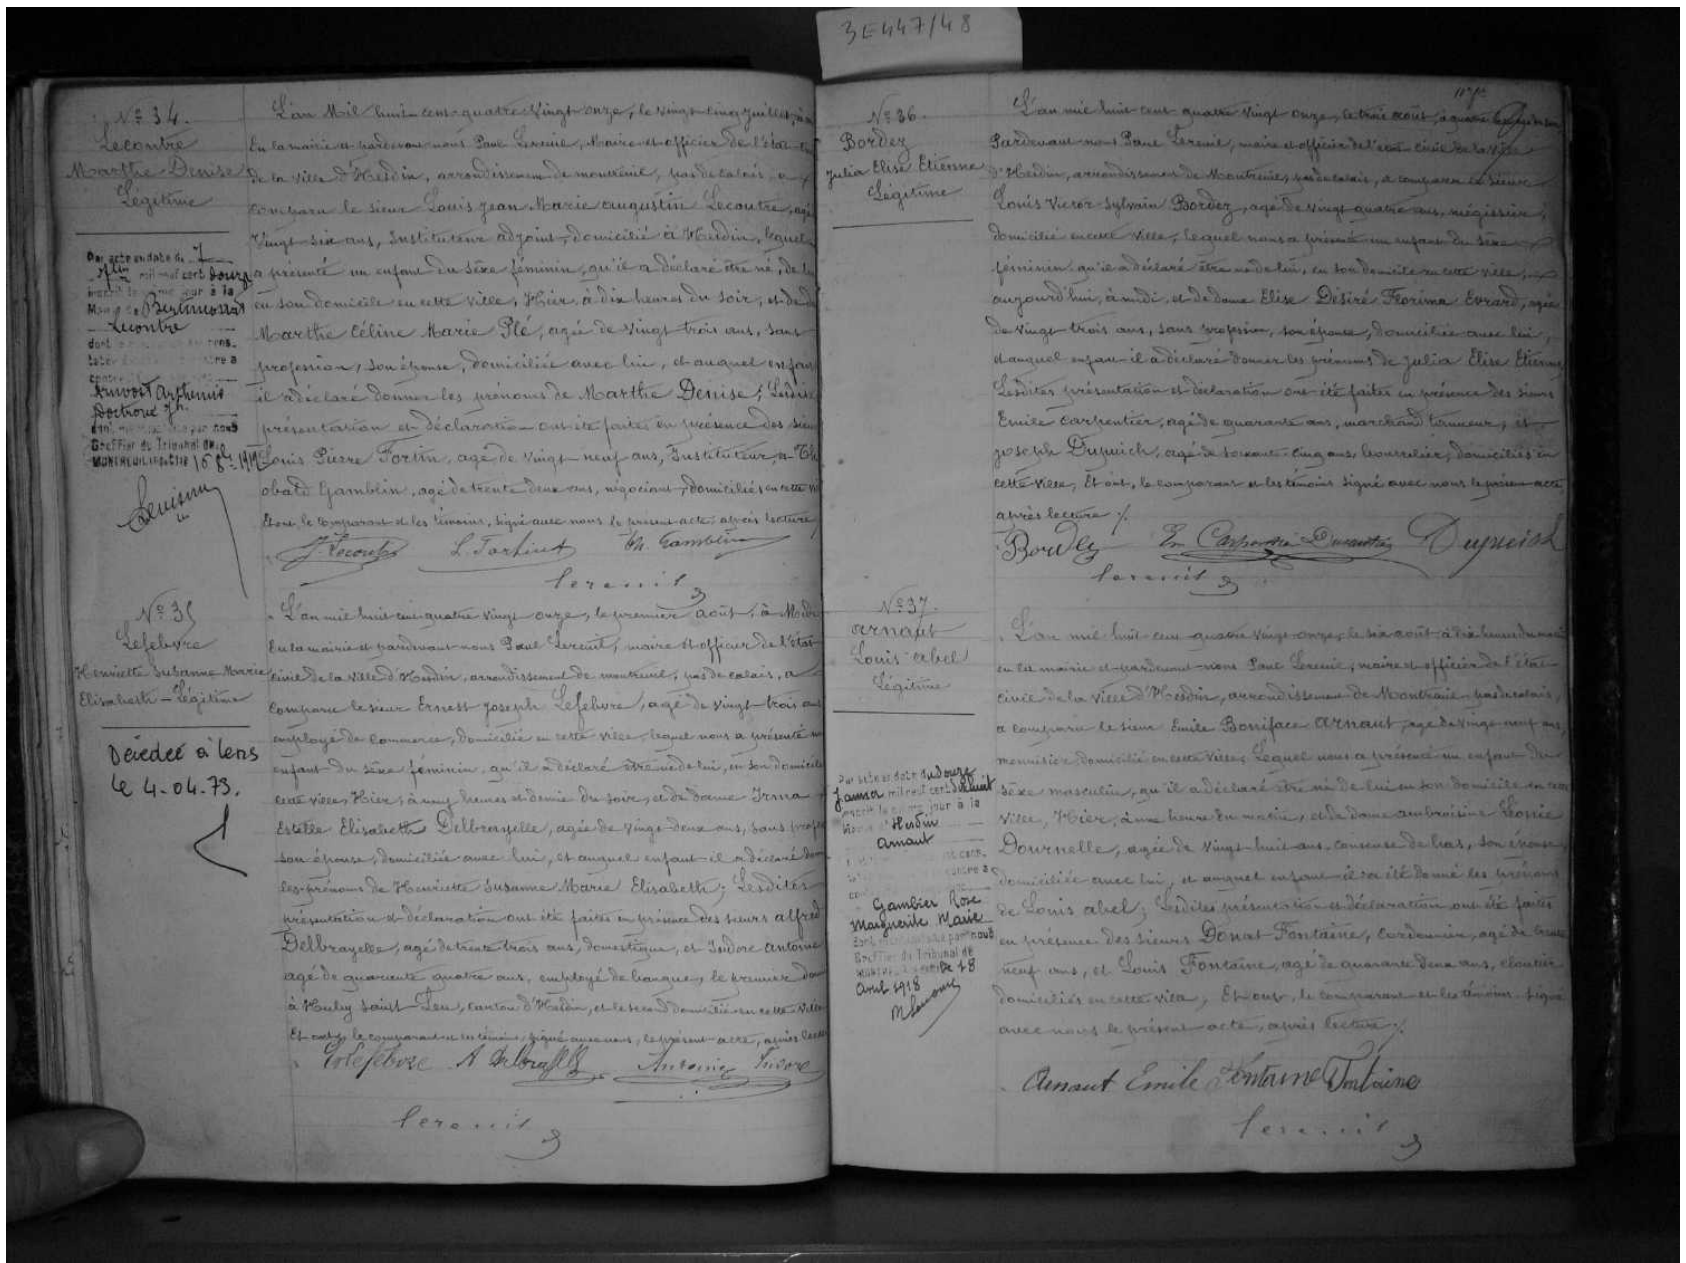 3E447/48
N° 34.
Lecontre
Marthe Denise
Légitime
Par acte en date du 7
mil neuf cent douze
inscrit le même jour à la
Lecontre
dont
Greffier du Tribunal de
MONTREUIL
L'an Mil huit cent quatre vingt onze, le vingt cinq juillet, à
En la mairie et pardevant nous Paul Lereuil, Maire et officier de l'état
de la ville d'Hesdin, arrondissement de montreuil, pas de calais, a
comparu le sieur Louis Jean Marie Augustin Lecontre, agé
Vingt six ans, Instituteur adjoint, domicilié à Hesdin, lequel
a présenté un enfant du sèxe féminin, qu'il a déclaré être né, de lui
en son domicile en cette ville, Hier à dix heures du soir, et de
Marthe Céline Marie Plé, agée de vingt trois ans, sans
profession, son épouse, domiciliée avec lui, et auquel enfant
il a déclaré donner les prénoms de Marthe Denise; Lesdites
présentation et déclaration ont été faites en présence des sieurs
Louis Pierre Fortin, agé de vingt neuf ans, Instituteur, et Th
obald Gamblin, agé de trente deux ans, négociant, domiciliés en cette ville
Et ont le comparant et les témoins, signé avec nous le présent acte après lecture
Th. Gamblin
Lereuil
N° 35
Lefebvre
Henriette Susanne Marie
Elisabeth - Légitime
Décédée à Lens
le 4.04.73.
L'an mil huit cent quatre vingt onze, le premier août, à Midi
En la mairie et pardevant nous Paul Lereuil, maire et officier de l'état
civil de la ville d'Hesdin, arrondissement de montreuil, pas de calais, a
comparu le sieur Ernest Joseph Lefebvre, agé de vingt trois ans
employé de commerce, domicilié en cette ville, lequel nous a présenté un
enfant du sèxe féminin, qu'il a déclaré être né de lui, en son domicile
cette ville, Hier, à neuf heures et demie du soir, et de dame Irma
Estelle Elisabeth Delbrayelle, agée de vingt deux ans, sans profes
son épouse, domiciliée avec lui, et auquel enfant il a déclaré donner
les prénoms de Henriette Susanne Marie Elisabeth; Lesdites
présentation et déclaration ont été faites en présence des sieurs Alfred
Delbrayelle, agé de trente trois ans, domestique, et Isidore Antoine
agé de quarante quatre ans, employé de banque, le premier
à Huby Saint Leu, canton d'Hesdin, et le second domicilié en cette ville
Et ont, le comparant et les témoins, signé avec nous, le présent acte, après lecture
Lefebvre A Delbrayelle Antoine Isidore
Lereuil
N° 36.
Bordez
Julia Elise Etienne
Légitime
L'an mil huit cent quatre vingt onze, le trois août, à quatre
Pardevant nous Paul Lereuil, maire et officier de l'état civil de la ville
d'Hesdin, arrondissement de Montreuil, pas de calais, a comparu le sieur
Louis Victor Sylvain Bordez, agé de vingt quatre ans, mégissier,
domicilié en cette ville, lequel nous a présenté un enfant du sèxe
féminin qu'il a déclaré être né de lui, en son domicile en cette ville,
aujourd'hui, à midi, et de dame Elise Désiré Florina Evrard, agée
de vingt trois ans, sans profession, son épouse, domiciliée avec lui,
et auquel enfant il a déclaré donner les prénoms de Julia Elise Etienne
Lesdites présentation et déclaration ont été faites en présence des sieurs
Emile Carpentier, agé de quarante ans, marchand tanneur, et
Joseph Dupuich, agé de soixante cinq ans, bourrelier, domiciliés en
cette ville, Et ont, le comparant et les témoins signé avec nous le présent acte,
après lecture ./.
Bordez Dupuich
Lereuil
N° 37.
Arnaut
Louis Abel
Légitime
Par acte en date du douze
Janvier mil neuf cent dix huit
inscrit le même jour à la
Mairie d'Hesdin
Arnaut
Gambier Rose
Marguerite Marie
Greffier du Tribunal de
18
Avril 1918
L'an mil huit cent quatre vingt onze, le six août à dix heures du matin
en la mairie et pardevant nous Paul Lereuil, maire et officier de l'état
civil de la ville d'Hesdin, arrondissement de Montreuil, pas de calais,
a comparu le sieur Emile Boniface Arnaut, agé de vingt neuf ans,
menuisier, domicilié en cette ville, Lequel nous a présenté un enfant du
sèxe masculin, qu'il a déclaré être né de lui en son domicile en cette
ville, Hier, à une heure du matin, et de dame Ambroisine Léonie
Dournelle, agée de vingt huit ans, couseuse de bas, son épouse,
domiciliée avec lui, et auquel enfant il a été donné les prénoms
de Louis Abel; Lesdites présentation et déclaration ont été faites
en présence des sieurs Donat Fontaine, Cordonnier, agé de trente
neuf ans, et Louis Fontaine, agé de quarante deux ans, cloutier
domiciliés en cette ville, Et ont, le comparant et les témoins signé
avec nous le présent acte, après lecture ./.
Arnaut Emile Fontaine Fontaine
Lereuil